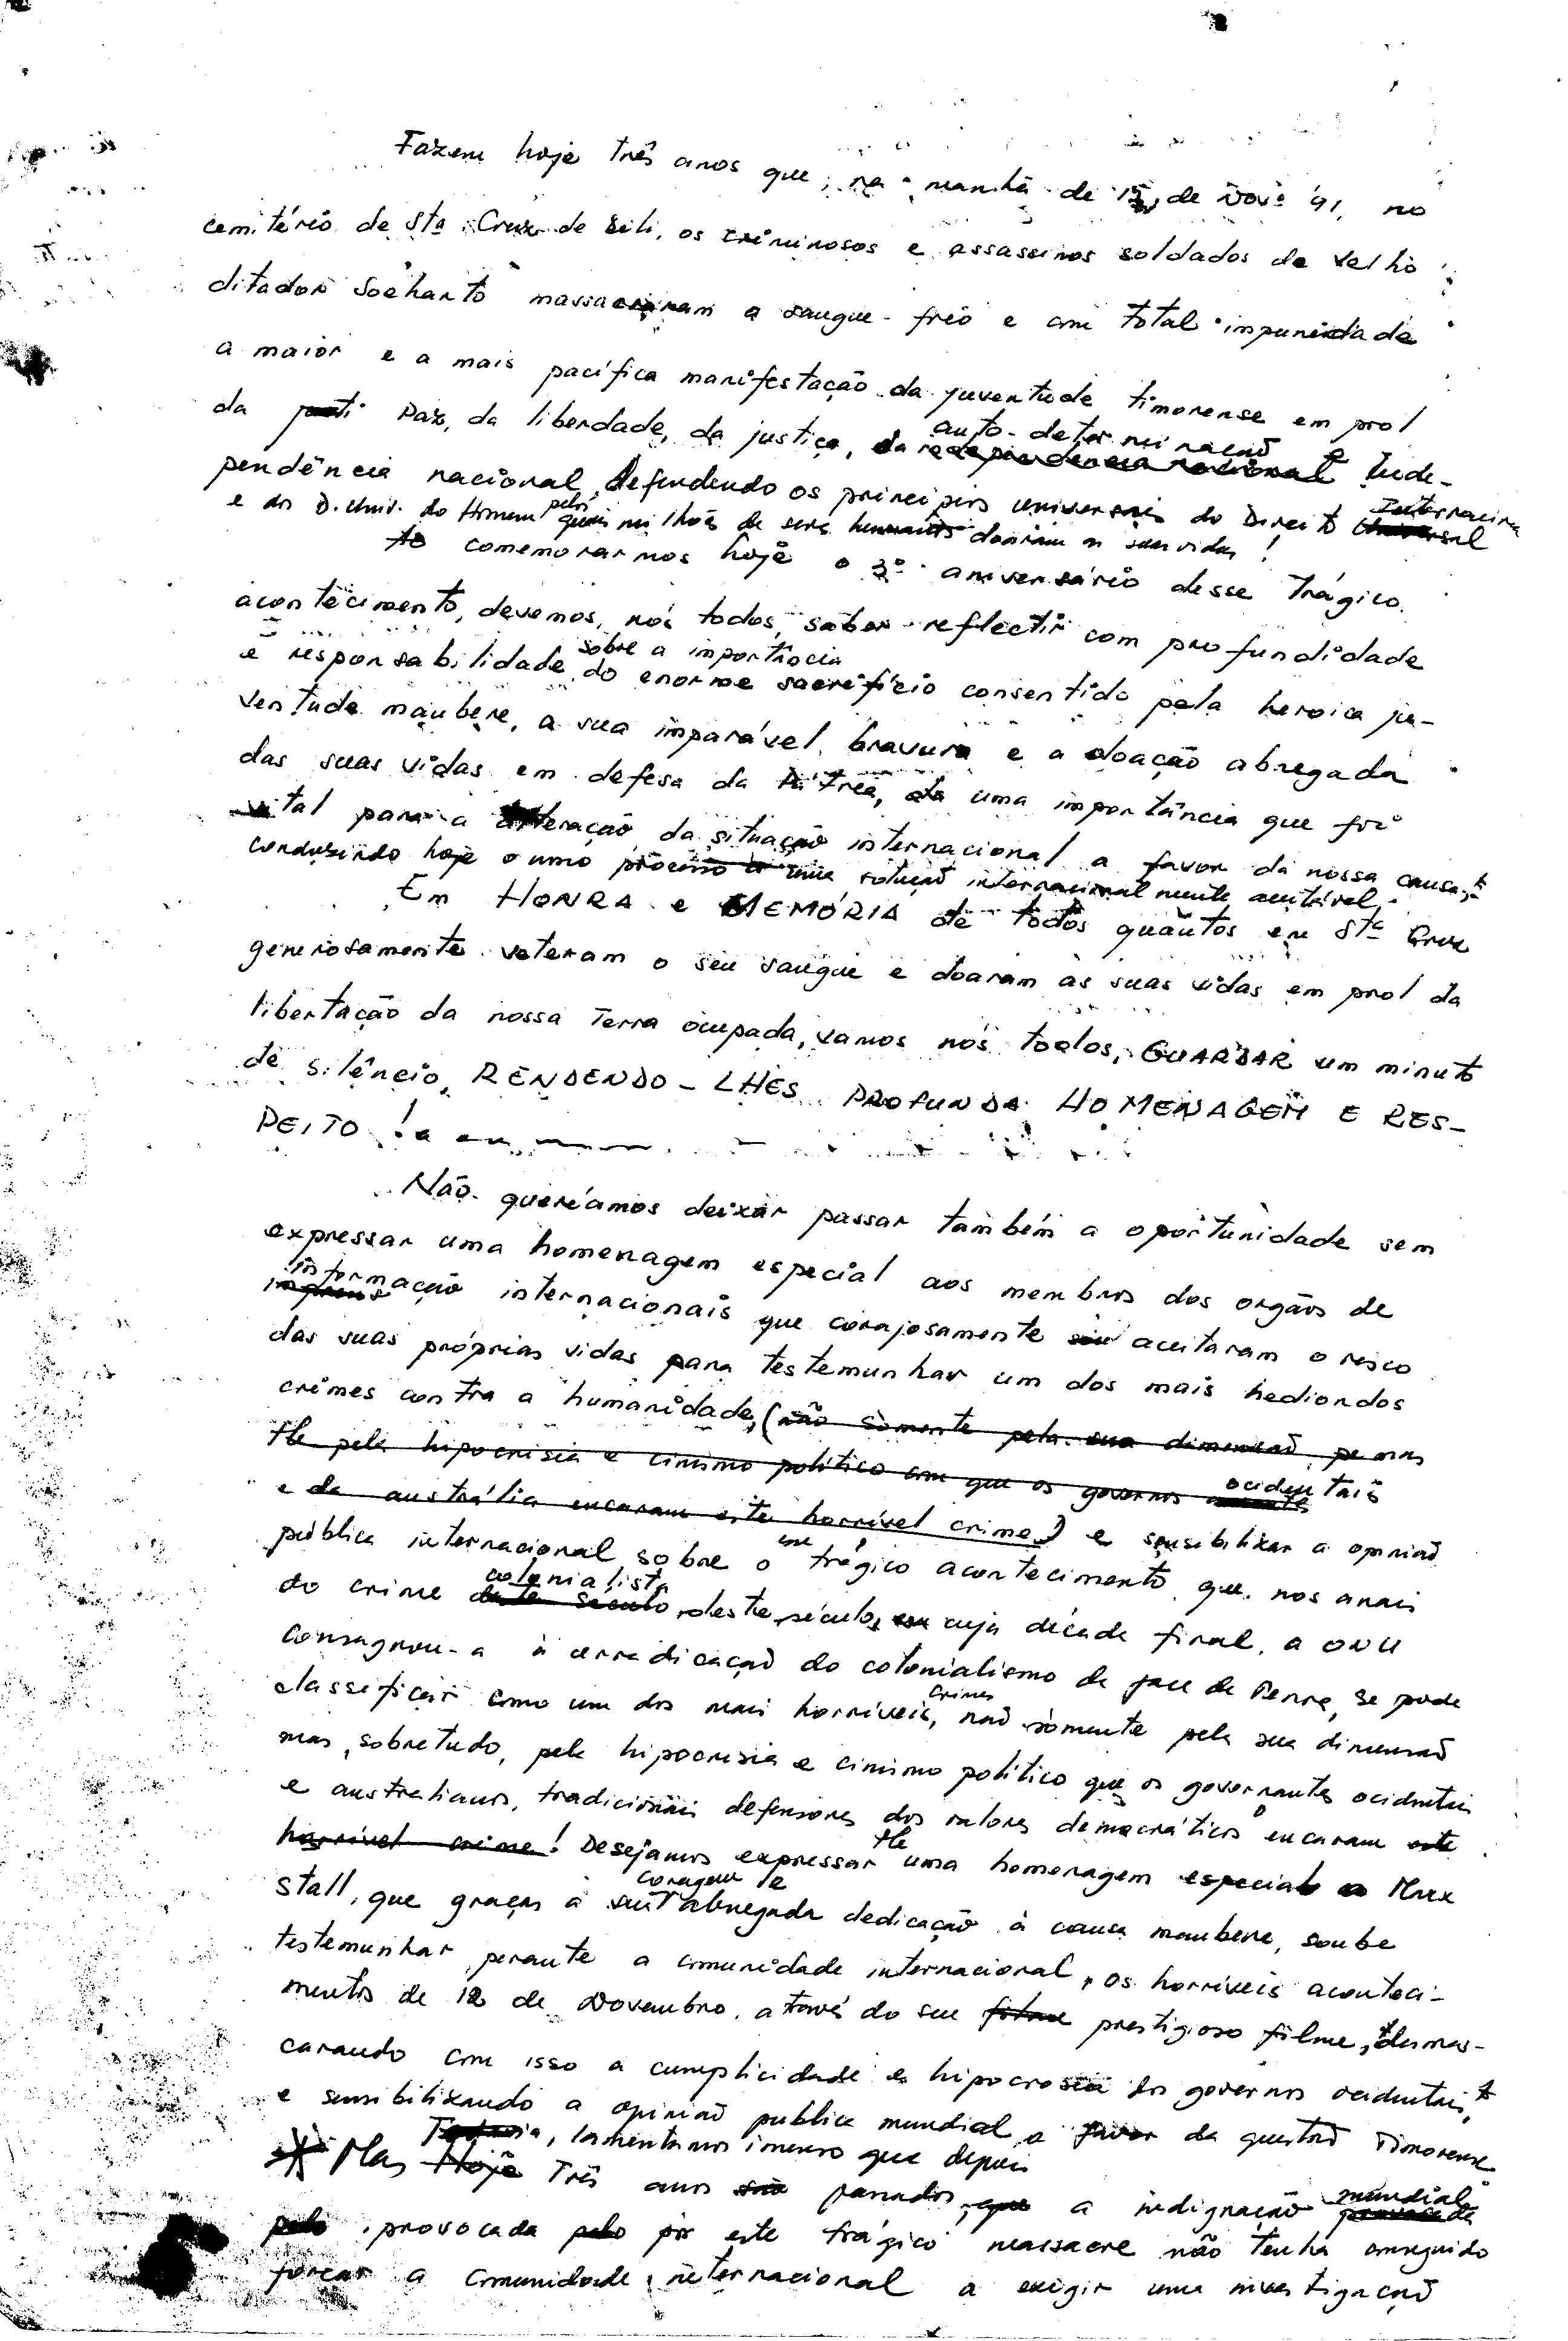 Fazem hoje três anos que, na manhã de 12, de Novº 91, no
cemitério de Stª Cruz de Dili, os criminosos e assassinos soldados de velho
ditador Soeharto massacraram a sangue-frio e com total impunidade
a maior e a mais pacífica manifestação da juventude timorense em prol
da Paz, da liberdade, da justiça, da auto-determinação e Inde-
pendência nacional, defendendo os princípios universais do Direito Internacional
e dos D. Univ. do Homem pelos quais milhões de seres humanos doaram as suas vidas!
Ao comemorarmos hoje o 3º aniversário desse trágico
acontecimento, devemos, nós todos, saber reflectir com profundidade
e responsabilidade sobre a importância do enorme sacrifício consentido pela heroica ju-
ventude maubere, a sua imparável bravura e a doação abnegada
das suas vidas em defesa da Pátria, uma importância que foi
vital para a alteração da situação internacional a favor da nossa causa,
conduzindo hoje a um processo uma solução internacionalmente aceitável.
Em HONRA e MEMÓRIA de todos quantos em Stª Cruz
generosamente verteram o seu sangue e doaram as suas vidas em prol da
libertação da nossa Terra ocupada, vamos nós todos, GUARDAR um minuto
de silêncio, RENDENDO-LHES PROFUNDA HOMENAGEM E RES-
PEITO!
Não queríamos deixar passar também a oportunidade sem
expressar uma homenagem especial aos membros dos orgãos de
informação internacionais que corajosamente aceitaram o risco
das suas próprias vidas para testemunhar um dos mais hediondos
crimes contra a humanidade, (não somente pela sua dimensão, mas
pela hipocrisia e cinismo político com que os governos ocidentais
e da austrália encaram este horrível crime) e sensibilizar a opinião
pública internacional sobre o trágico acontecimento que nos anais
do crime colonialista deste século, cuja década final, a ONU
consagrou-a à erradicação do colonialismo da face da Terra, se pode
classificar como um dos mais horríveis crimes, não somente pela sua dimensão
mas, sobretudo, pela hipocrisia e cinismo político que os governantes ocidentais
e australianos, tradicionais defensores dos valores democráticos o encaram este
horrível crime! Desejamos expressar uma homenagem especial a Max
Stall, que graças à coragem e abnegada dedicação à causa maubere, soube
testemunhar perante a comunidade internacional, os horríveis aconteci-
mentos de 12 de Novembro, através do seu filme prestigioso filme, desmas-
carando com isso a cumplicidade e hipocrosia dos governos ocidentais,
e sensibilizando a opinião publica mundial a favor da questão Timorense.
Todavia, lamentamos imenso que depois
Mas Hoje Três anos são passados, que a indignação mundial
provocada pelo por este trágico massacre não tenha conseguido
forçar a comunidade internacional a exigir uma investigação